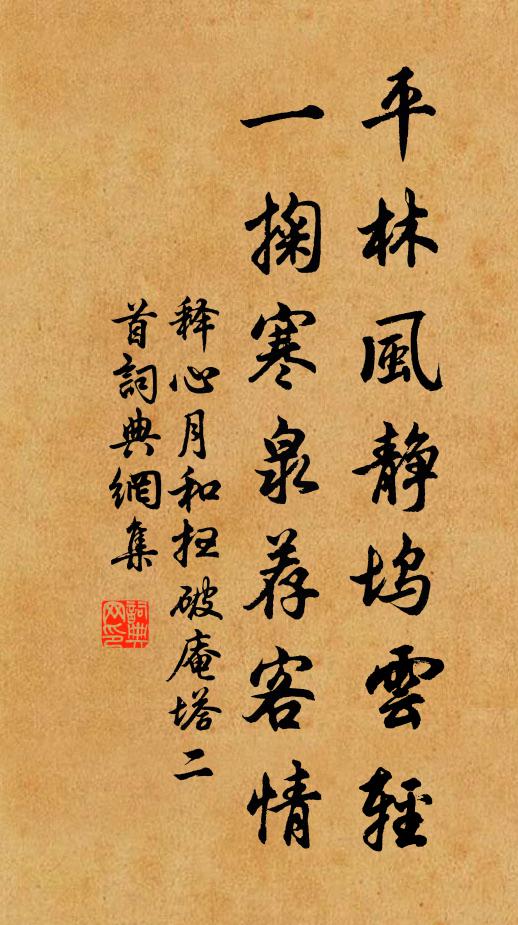 平林風静塢雲輕
一掬寒泉荐客情
释心月和抂破庵塔二
首詞典網集
詞典
网印